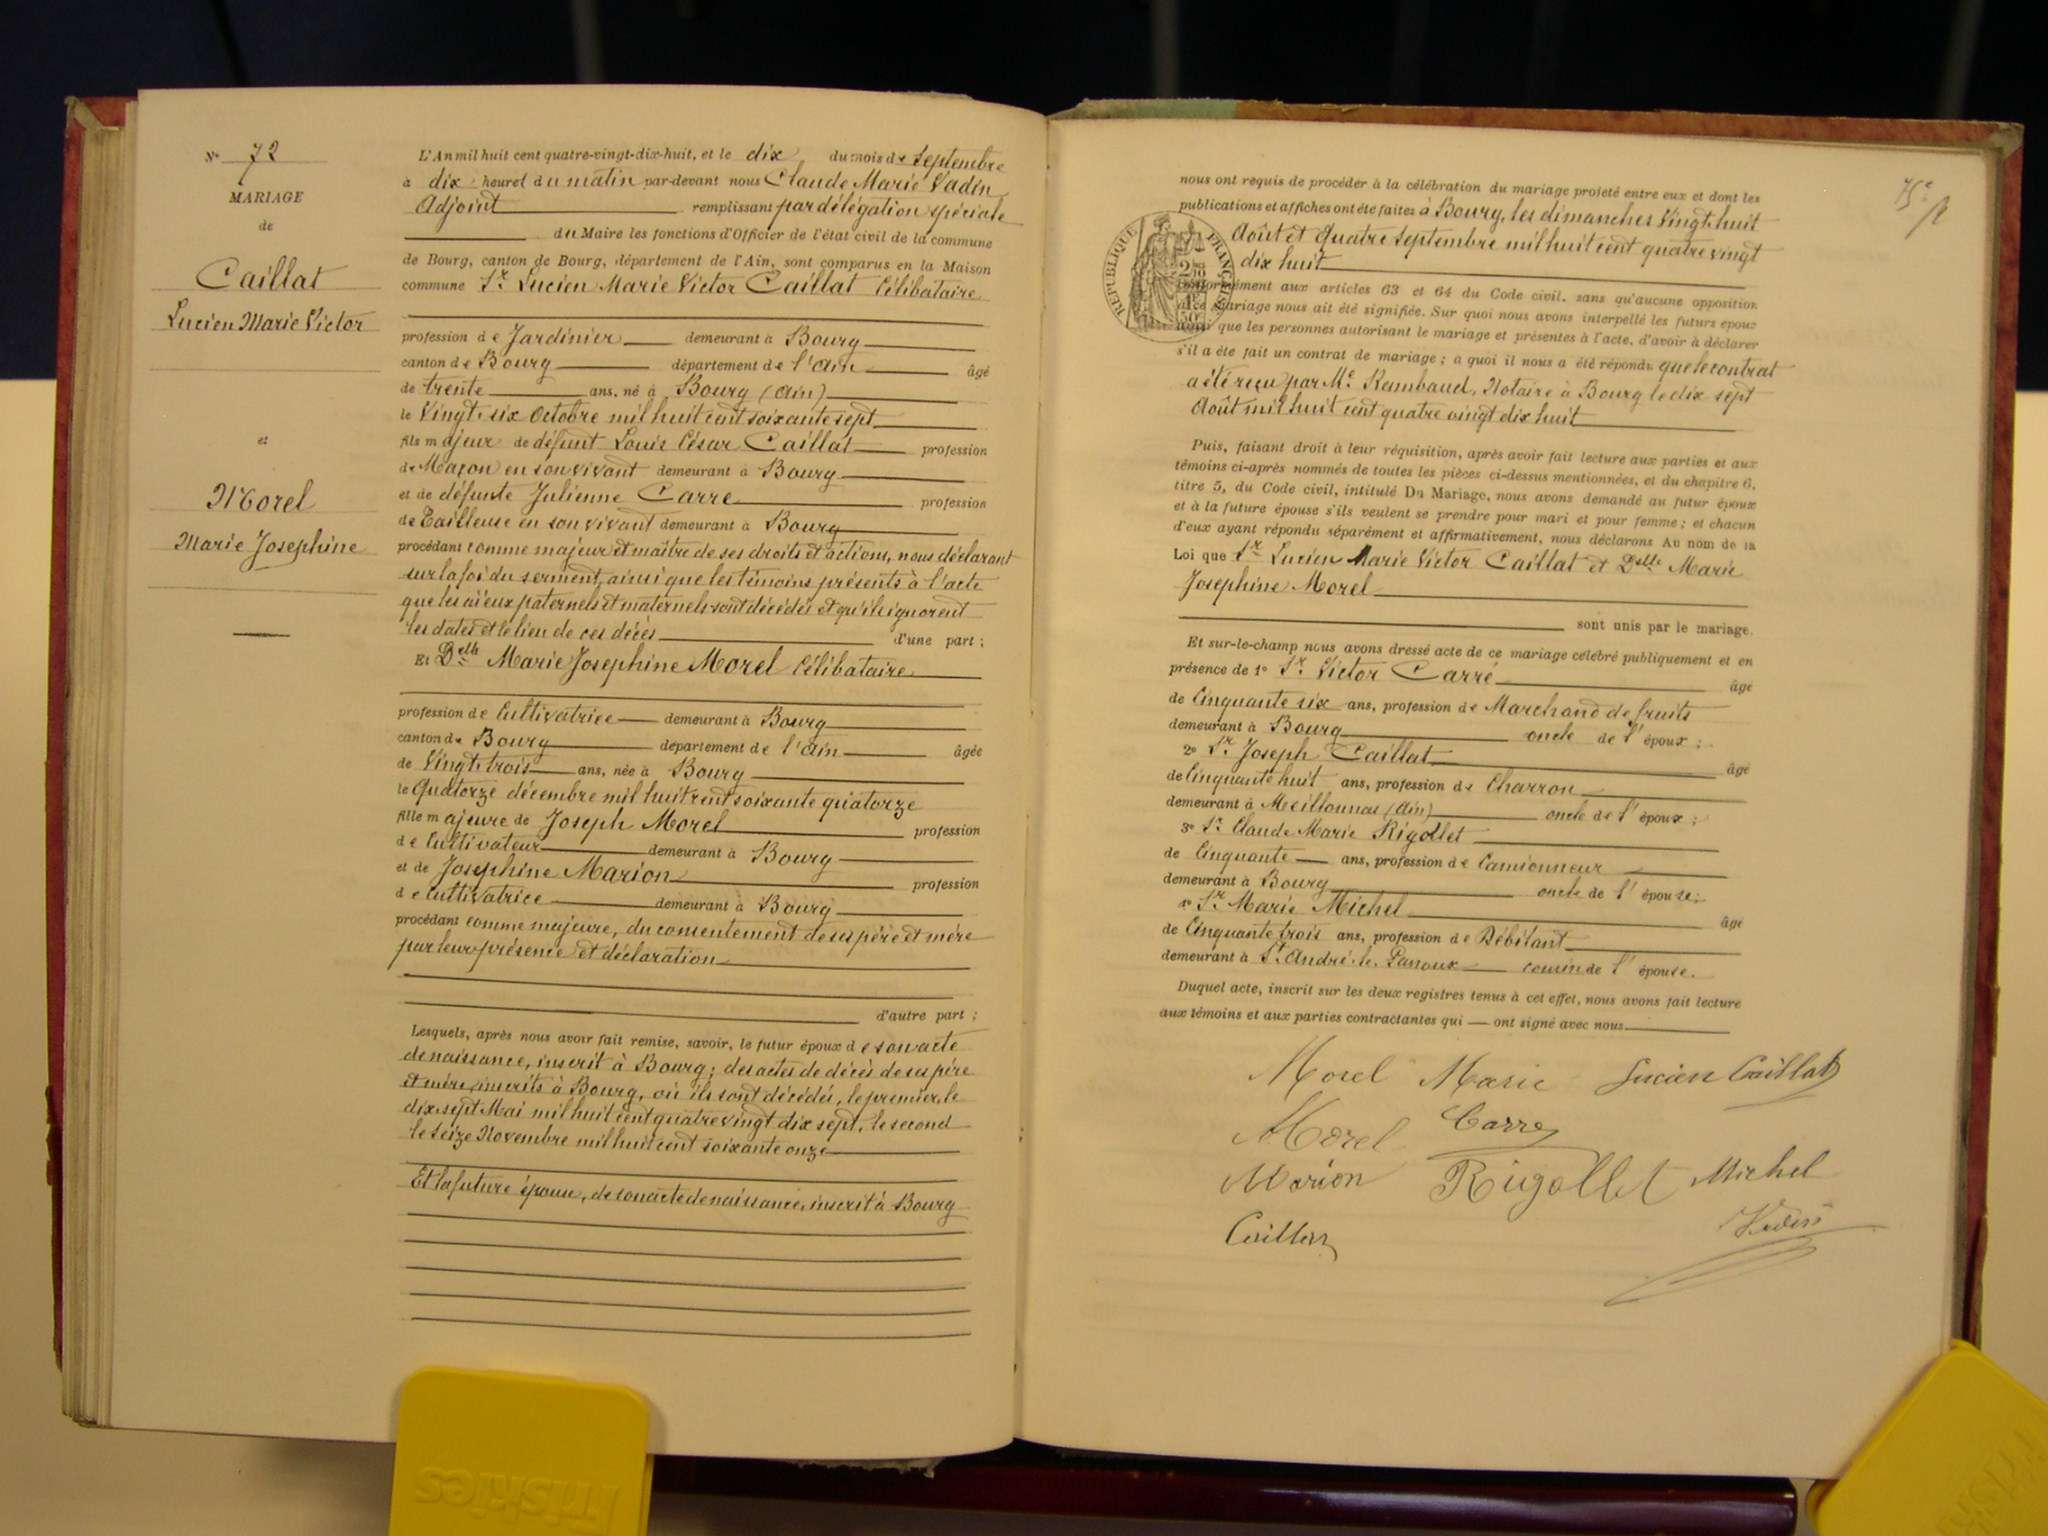 N° 72
MARIAGE
de
Caillat
Lucien Marie Victor
et
Morel
Marie Josephine
L'An mil huit cent quatre-vingt-dix-huit, et le dix du mois de Septembre
à dix heures du matin par-devant nous Claude Marie Vadin
Adjoint remplissant par délégation spéciale
du Maire les fonctions d'Officier de l'état civil de la commune
de Bourg, canton de Bourg, département de l'Ain, sont comparus en la Maison
commune Sr Lucien Marie Victor Caillat Célibataire
profession de Jardinier demeurant à Bourg
canton de Bourg département de l'Ain âgé
de trente ans, né à Bourg (Ain)
le Vingt-six Octobre mil huit cent soixante sept
fils majeur de défunt Louis César Caillat profession
de Maçon en son vivant demeurant à Bourg
et de défunte Julienne Carre profession
de Tailleuse en son vivant demeurant à Bourg
procédant comme majeur et maître de ses droits et actions, nous déclarant
sur la foi du serment, ainsi que les témoins présents à l'acte
que les aïeux paternels et maternels sont décédés et qu'ils ignorent
les dates et le lieu de ces décès d'une part ;
Et Delle Marie Josephine Morel Célibataire
profession de Cultivatrice demeurant à Bourg
canton de Bourg département de l'Ain âgée
de Vingt trois ans, née à Bourg
le Quatorze décembre mil huit cent soixante quatorze
fille majeure de Joseph Morel profession
de Cultivateur demeurant à Bourg
et de Josephine Marion profession
de Cultivatrice demeurant à Bourg
procédant comme majeure, du consentement de ses père et mère
par leur présence et déclaration
d'autre part ;
Lesquels, après nous avoir fait remise, savoir, le futur époux de son acte
de naissance, inscrit à Bourg ; des actes de décès de ses père
et mère, inscrits à Bourg, où ils sont décédés, le premier, le
dix sept Mai mil huit cent quatre vingt dix sept, le second
le seize Novembre mil huit cent soixante onze
Et la future épouse, de son acte de naissance, inscrit à Bourg
75e
nous ont requis de procéder à la célébration du mariage projeté entre eux et dont les
publications et affiches ont été faites à Bourg, les dimanches Vingt-huit
Août et Quatre Septembre mil huit cent quatre vingt
dix huit
RÉPUBLIQUE FRANÇAISE
conformément aux articles 63 et 64 du Code civil, sans qu'aucune opposition
à ce mariage nous ait été signifiée. Sur quoi nous avons interpellé les futurs époux
ainsi que les personnes autorisant le mariage et présentes à l'acte, d'avoir à déclarer
s'il a été fait un contrat de mariage ; à quoi il nous a été répondu que le contrat
a été reçu par Me Rambaud, Notaire à Bourg le dix sept
Août mil huit cent quatre vingt dix huit
Puis, faisant droit à leur réquisition, après avoir fait lecture aux parties et aux
témoins ci-après nommés de toutes les pièces ci-dessus mentionnées, et du chapitre 6,
titre 5, du Code civil, intitulé Du Mariage, nous avons demandé au futur époux
et à la future épouse s'ils veulent se prendre pour mari et pour femme ; et chacun
d'eux ayant répondu séparément et affirmativement, nous déclarons Au nom de la
Loi que Sr Lucien Marie Victor Caillat et Delle Marie
Josephine Morel
sont unis par le mariage.
Et sur-le-champ nous avons dressé acte de ce mariage célébré publiquement et en
présence de 1° Sr Victor Carré âgé
de Cinquante six ans, profession de Marchand de fruits
demeurant à Bourg oncle de l'époux ;
2° Sr Joseph Caillat âgé
de Cinquante huit ans, profession de Charron
demeurant à Meillonnas (Ain) oncle de l'époux ;
3° Sr Claude Marie Rigollet
de Cinquante ans, profession de Camionneur
demeurant à Bourg oncle de l'épouse ;
4° Sr Marie Michel âgé
de Cinquante trois ans, profession de Débitant
demeurant à St André-le-Panoux cousin de l'épouse.
Duquel acte, inscrit sur les deux registres tenus à cet effet, nous avons fait lecture
aux témoins et aux parties contractantes qui — ont signé avec nous
Morel Marie Lucien Caillat
Morel Carre
Marion Rigollet Michel
Caillat Vadin
friskies